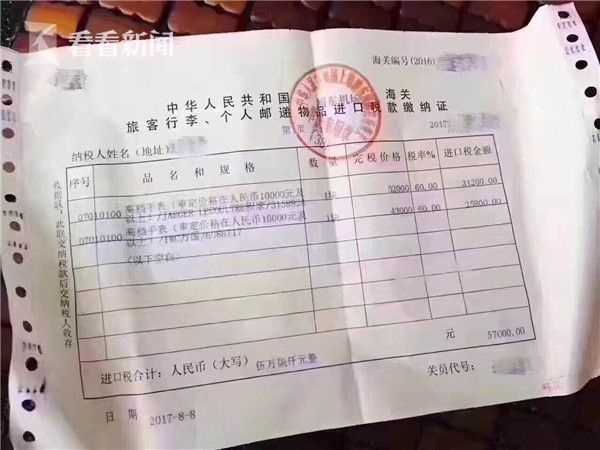 看看新闻
海关编号(2016)
中华人民共和国 浦东机场 海关
旅客行李、个人邮递物品进口税款缴纳证
2017
纳税人姓名(地址)
序号 品名和规格 数量 完税价格 税率% 进口税金额
07010100 高档手表(审定价格在人民币10000元及以上)/JAEGER LECOULTRE积家/ 1块 52000 60.00 31200.00
07010100 高档手表(审定价格在人民币10000元及以上)/IWC万国/ 1块 43000 60.00 25800.00
(以下空白)
元 57000.00
进口税合计:人民币(大写) 伍万柒仟元整
关员代号:
日期 2017-8-8
收据联:此联交纳税款后交纳税人收存